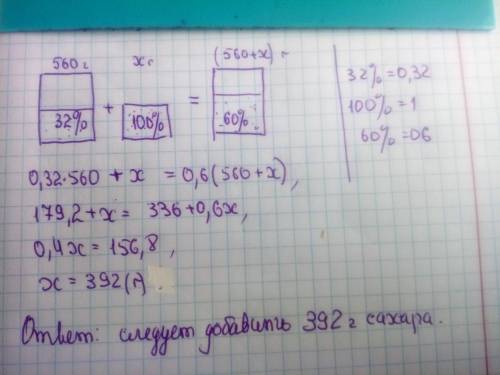 560 г   x г   (560+x) г
32% + 100% = 60%
32% = 0,32
100% = 1
60% = 06
0,32·560 + x = 0,6(560+x),
179,2+x = 336+0,6x,
0,4x = 156,8,
x = 392(г).
Ответ: следует добавить 392 г сахара.